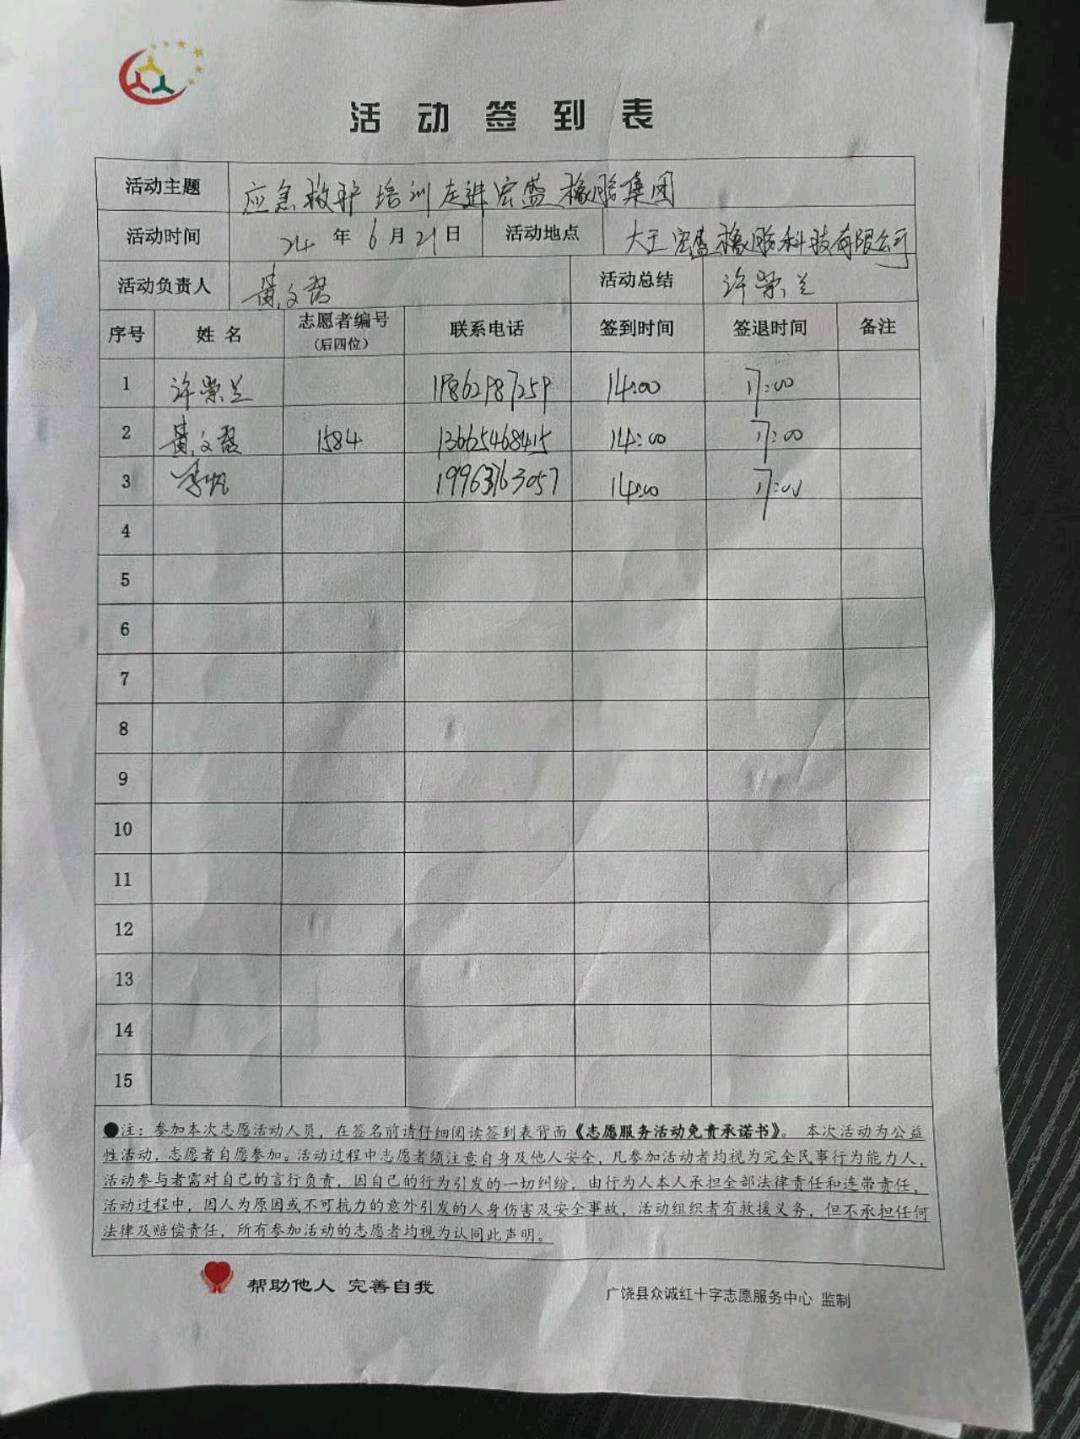 活动签到表
活动主题 应急救护培训走进宏盛橡胶集团
活动时间 24年6月21日 活动地点 大王宏盛橡胶科技有限公司
活动负责人 黄文君 活动总结 许荣兰
序号 姓名 志愿者编号（后四位） 联系电话 签到时间 签退时间 备注
1 许荣兰 14:00 17:00
2 黄文君 1584 13665468415 14:00 17:00
3 李帆 19963763057 14:00 17:00
4
5
6
7
8
9
10
11
12
13
14
15
●注：参加本次志愿活动人员，在签名前请仔细阅读签到表背面《志愿服务活动免责承诺书》。本次活动为公益
性活动，志愿者自愿参加。活动过程中志愿者须注意自身及他人安全，凡参加活动者均视为完全民事行为能力人，
活动参与者需对自己的言行负责，因自己的行为引发的一切纠纷，由行为人本人承担全部法律责任和连带责任，
活动过程中，因人为原因或不可抗力的意外引发的人身伤害及安全事故，活动组织者有救援义务，但不承担任何
法律及赔偿责任，所有参加活动的志愿者均视为认同此声明。
帮助他人 完善自我
广饶县众诚红十字志愿服务中心 监制